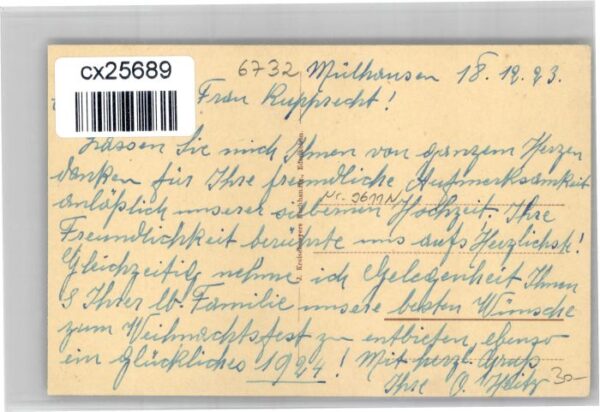 cx25689
6732 Mülhausen 18.12.23.
Frau Rupprecht!
Lassen Sie mich Ihnen von ganzem Herzen
danken für Ihre freundliche Aufmerksamkeit
Nr. 9611 N
anläßlich unserer silbernen Hochzeit. Ihre
Freundlichkeit berührte uns aufs Herzlichste!
Gleichzeitig nehme ich Gelegenheit Ihnen
& Ihrer lb. Familie unsere besten Wünsche
zum Weihnachtsfest zu entbieten, ebenso
ein glückliches 1924! Mit herzl. Gruß
Ihre O. 30-